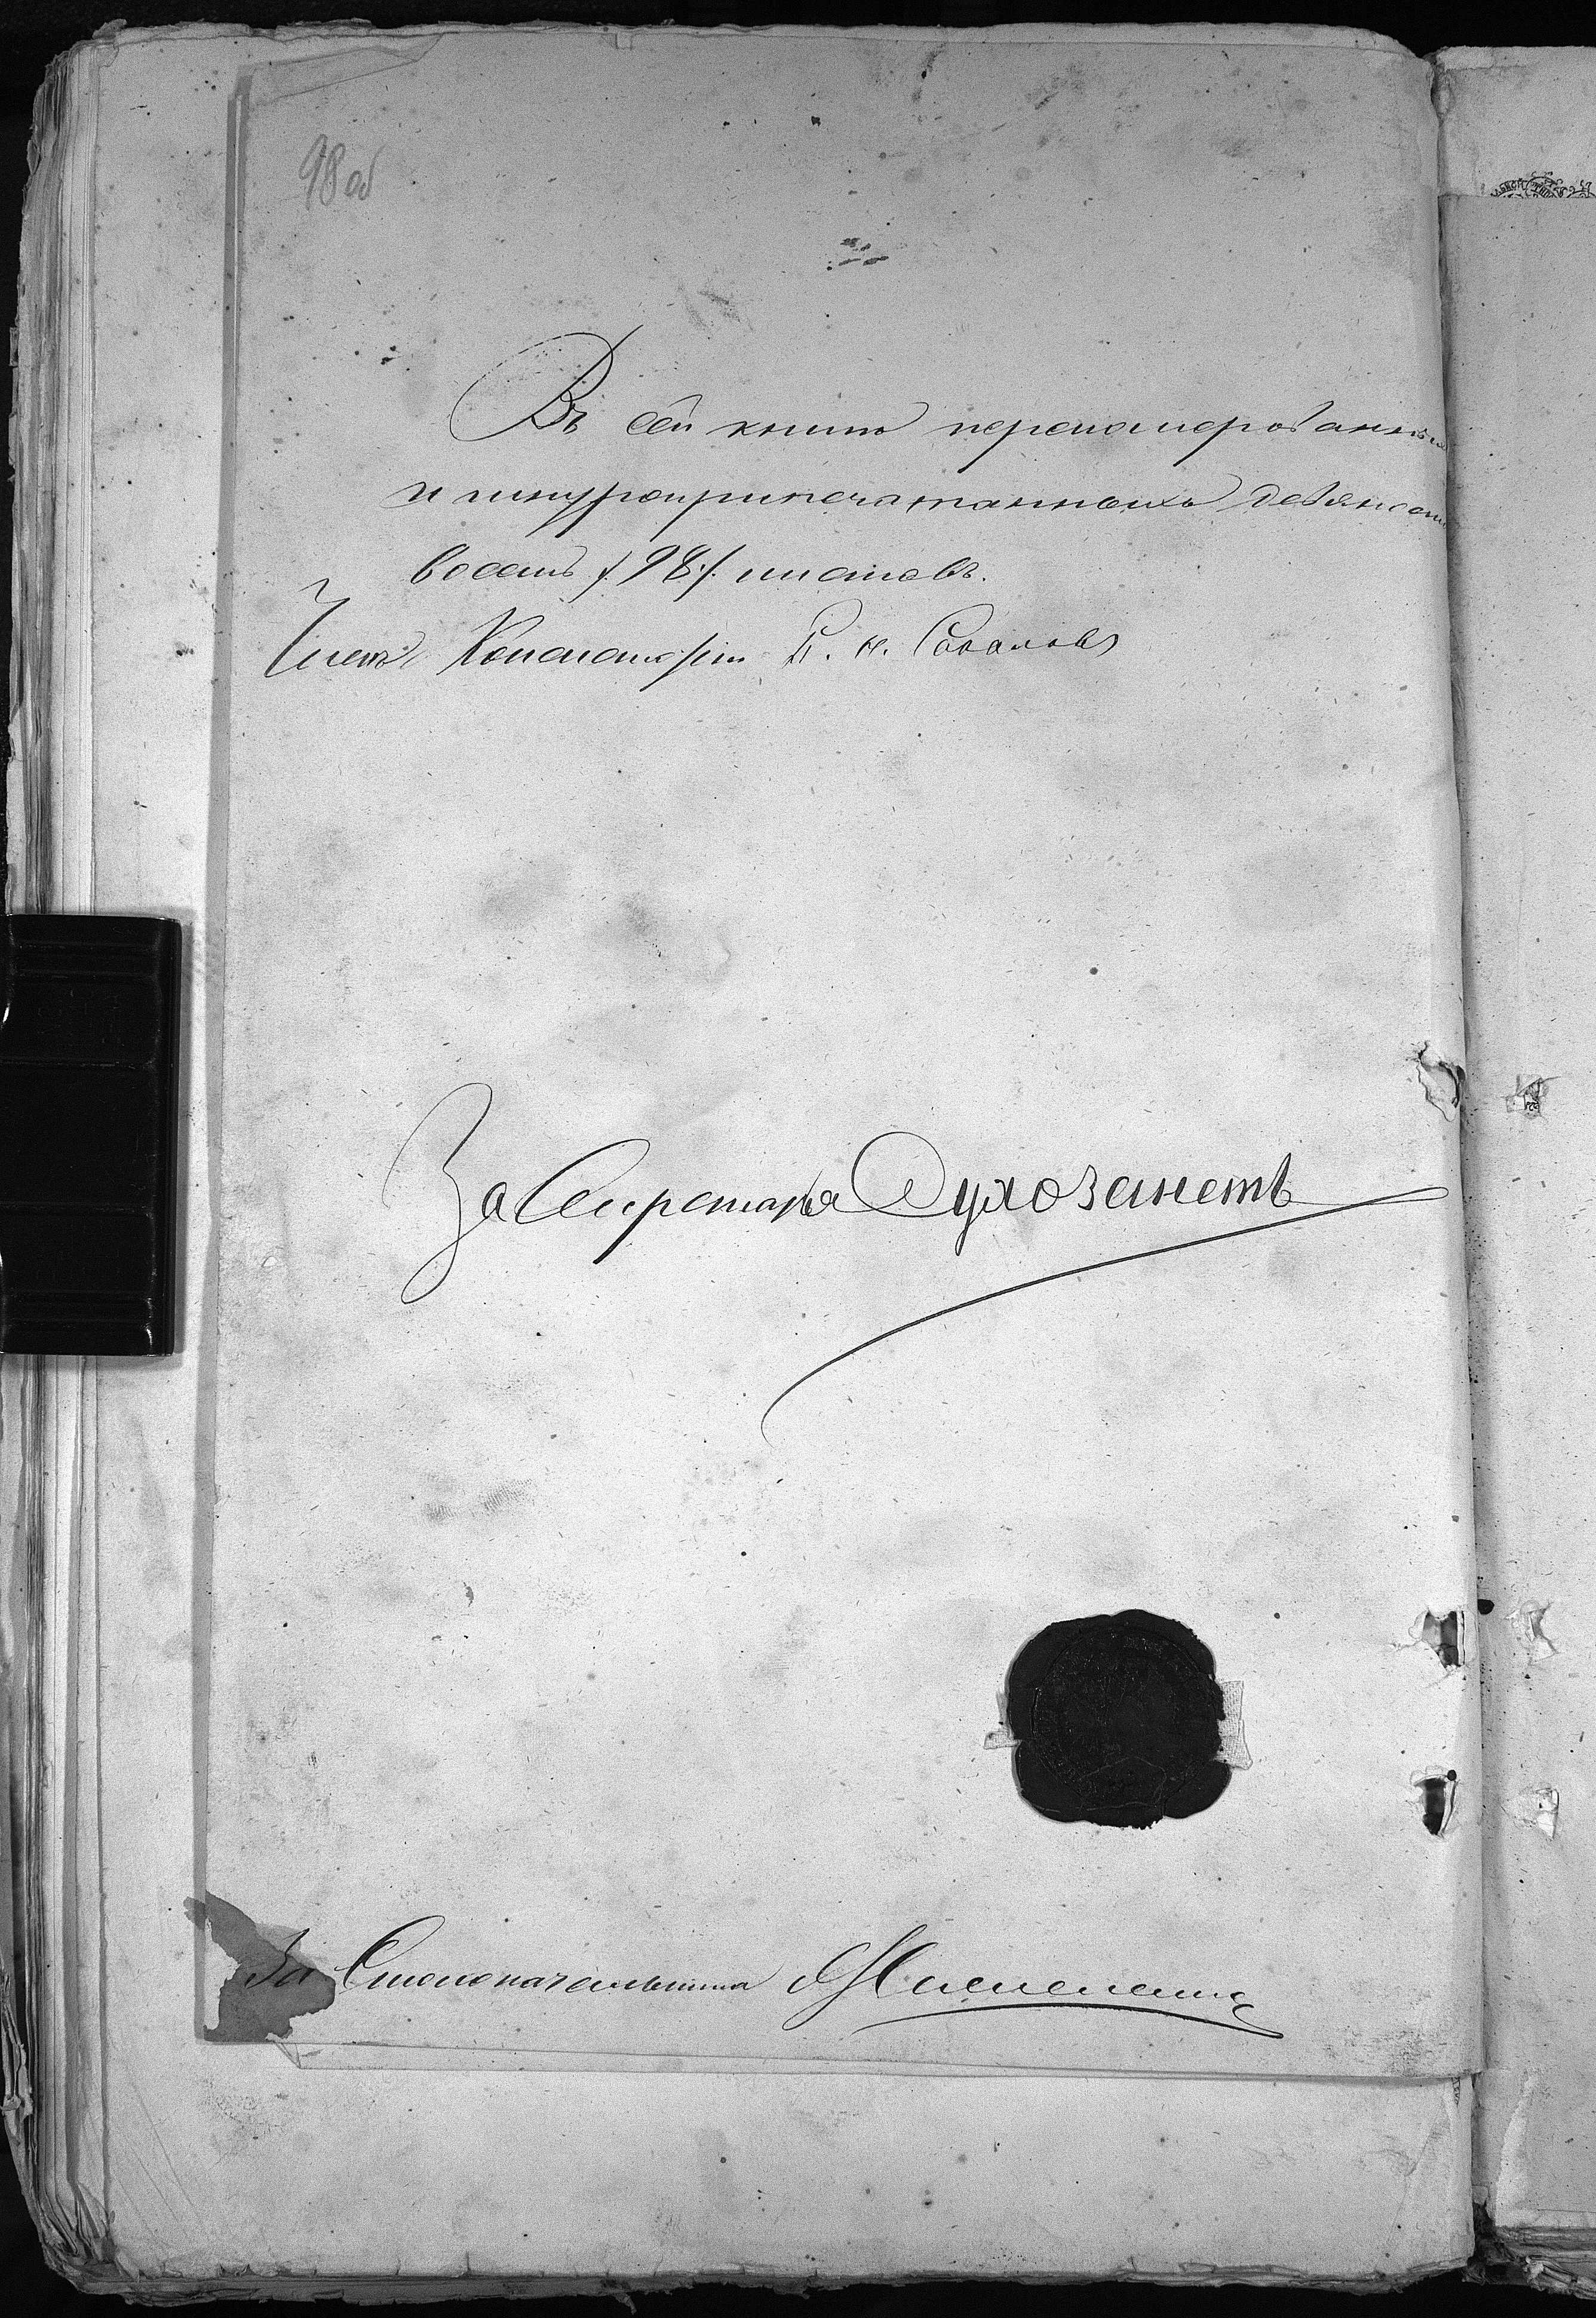 98 об
Въ сей книгѣ перенумерованныхъ
и шнуроприпечатанныхъ девяносто
восемь /98/. листовъ.
Членъ Консисторіи
За Секретаря Сухозанетъ
За Столоначальника